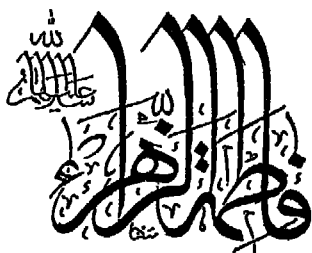 فاطمة الزهراء
سلام الله عليها